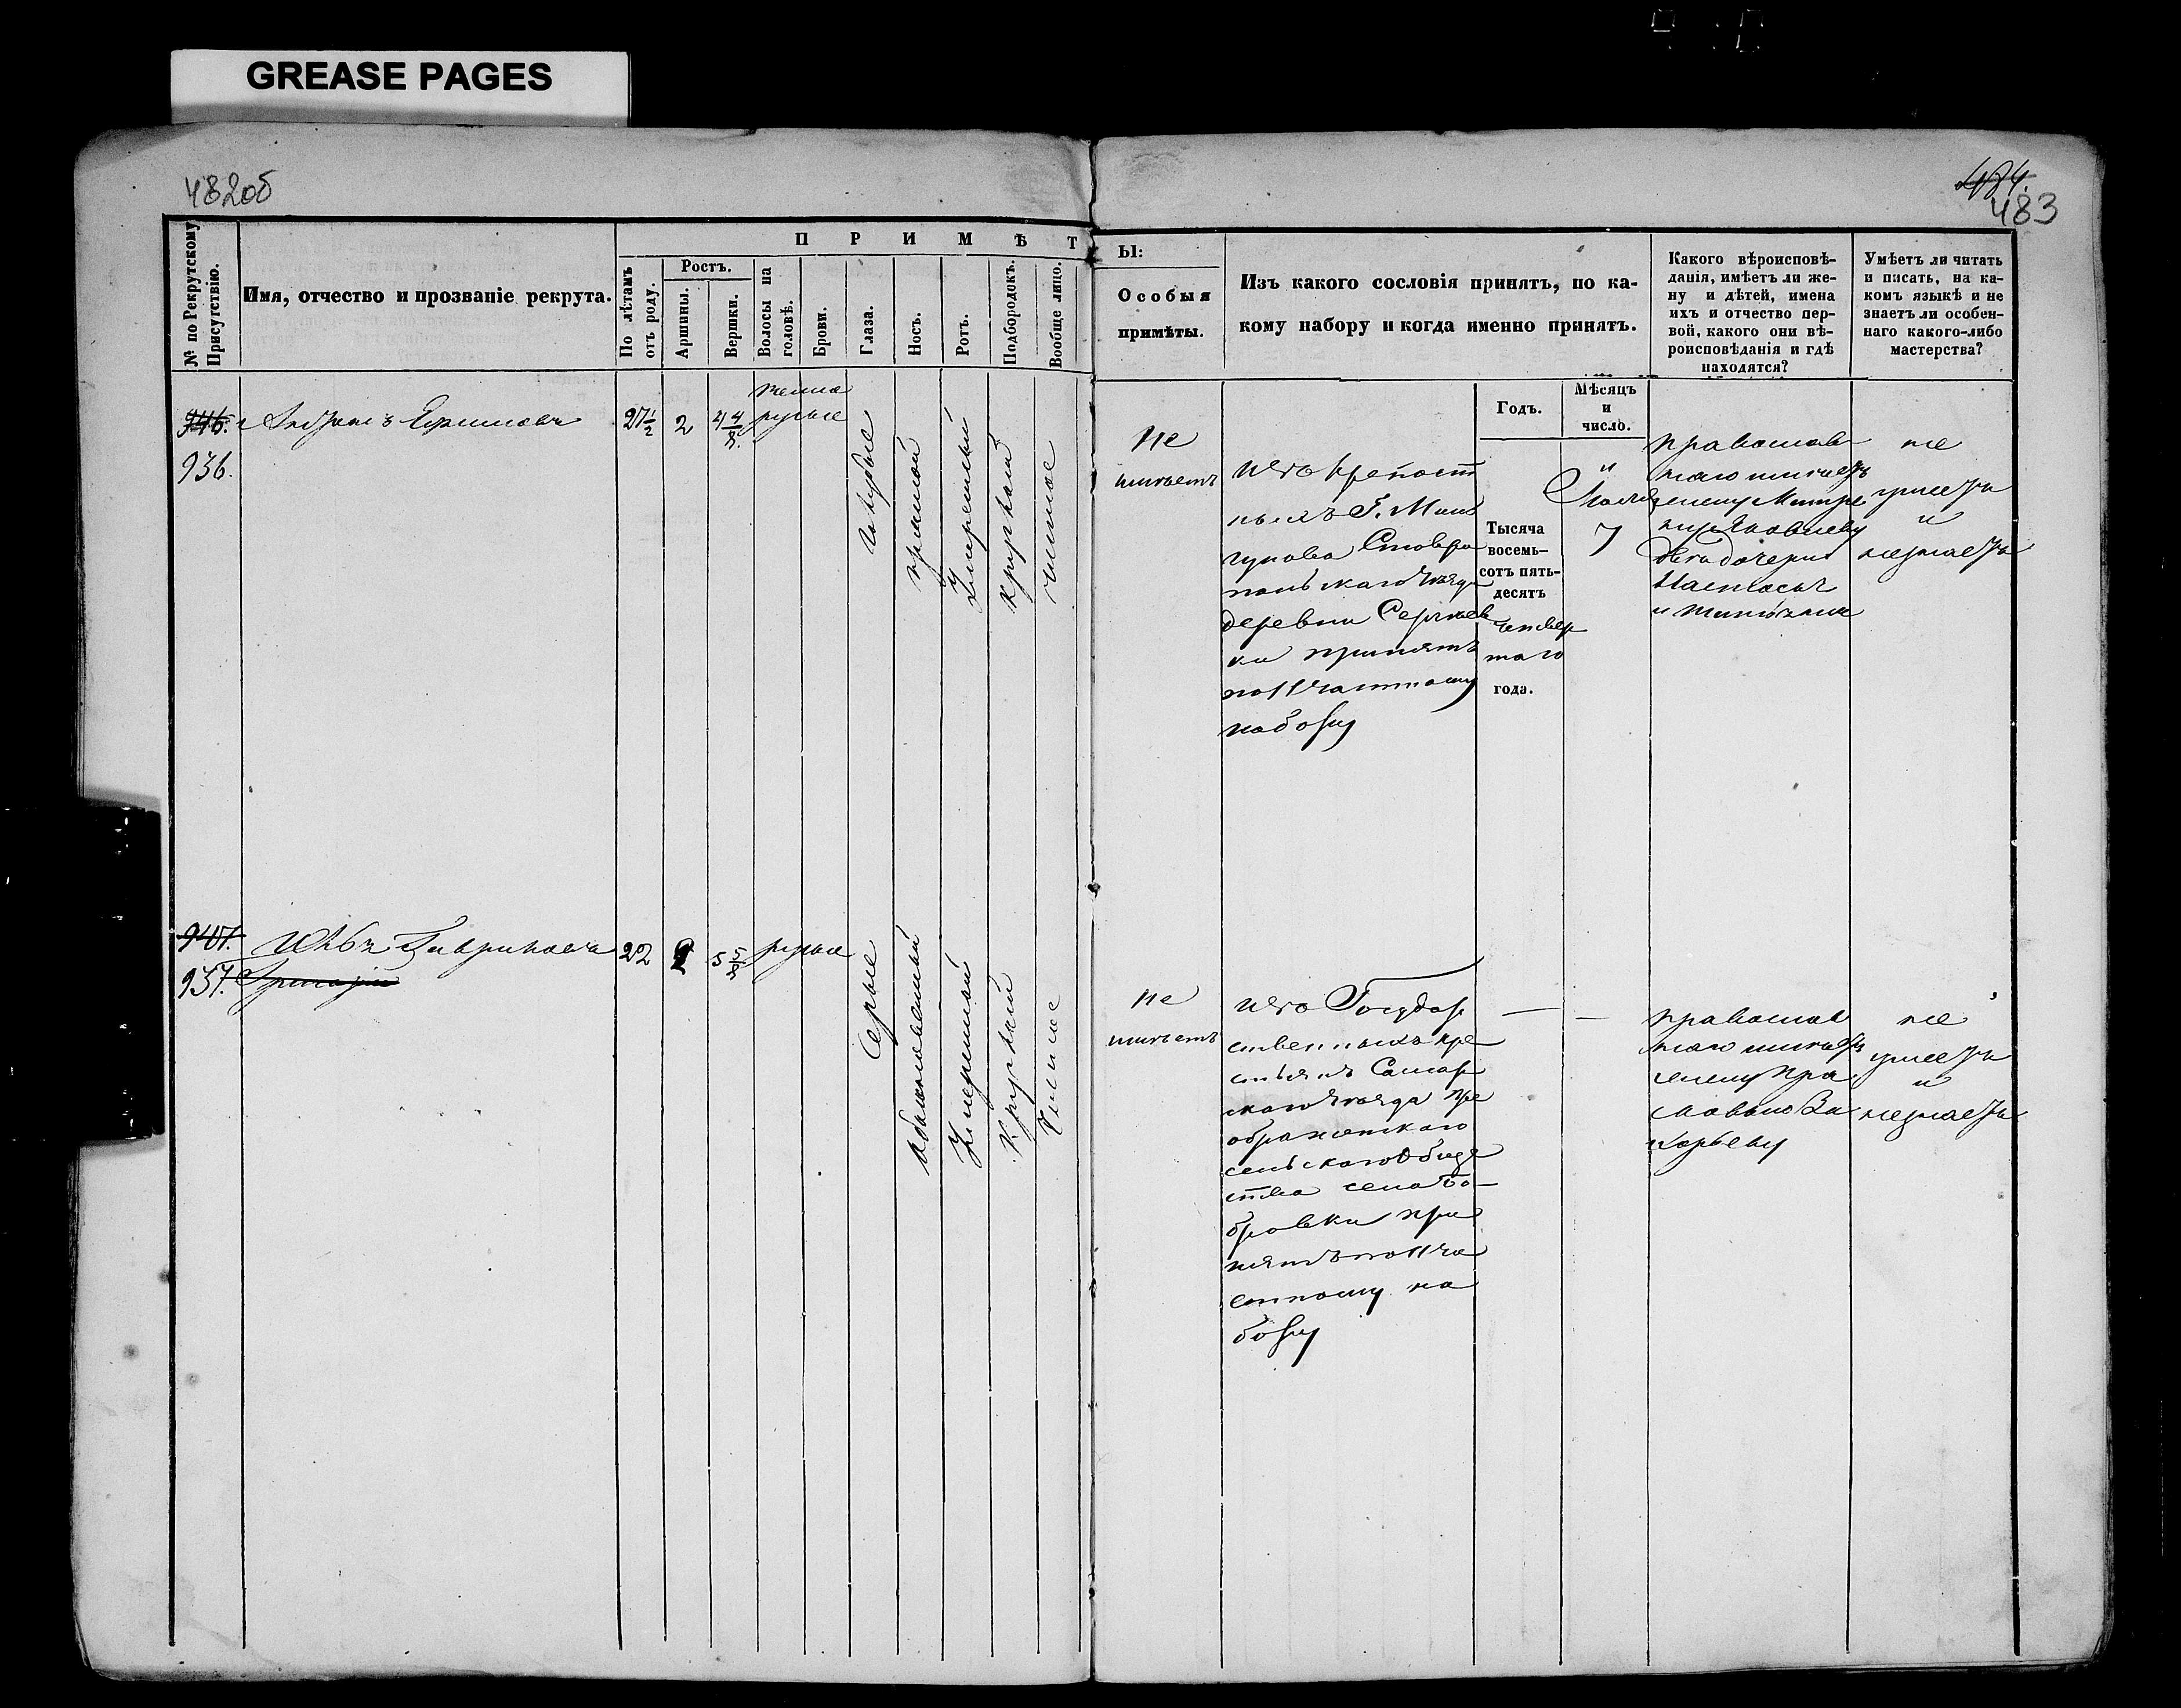 GREASE PAGES
482об
484.
483
№ по Рекрутскому Присутствію.
Имя, отчество и прозваніе рекрута.
ПРИМѢТ
Ы:
По лѣтамъ отъ роду.
Ростъ.
Аршины.
Вершки.
Волосы на головѣ.
Брови.
Глаза.
Носъ.
Ротъ.
Подбородокъ.
Вообще лицо.
Особыя
примѣты.
Изъ какого сословія принятъ, по ка-
кому набору и когда именно принятъ.
Какого вѣроисповѣ-
данія, имѣетъ ли же-
ну и дѣтей, имена
ихъ и отчество пер-
вой, какого они вѣ-
роисповѣданія и гдѣ
находятся?
Умѣетъ ли читать
и писать, на ка-
комъ языкѣ и не
знаетъ ли особен-
наго какого-либо
мастерства?
Годъ.
Мѣсяцъ
и
число.
946.
936.
27 1/2
2
4 4/8
темно
русые
голубые
прямой
умеренный
круглый
чистое
не
имѣетъ
изъ крепост
ныхъ Г.
Ставро
польскаго уѣзда
деревни Сергѣев
ки принятъ
по 11 частному
набору
Тысяча
восемь-
сотъ пять-
десятъ
четвер
таго
года.
7
православ
наго имѣетъ
жену Матре
ну Яковлеву
дочери
Настасья
и
не
умѣетъ
и
незнаетъ
947.
937.
Гавриловъ
Григорій
22
2
5 5/8
русые
Серые
обыкновенный
Умеренный
Круглый
Чистое
не
имѣетъ
изъ Государ
ственныхъ кре
стьянъ Самар
скаго уѣзда Пре
ображенскаго
сельскаго Обще
ства села Бо
бровки при
нятъ по 11 ча
стному на
бору
—
—
православ
наго имѣетъ
жену Пра
сковью За
харьеву
не
умѣетъ
и
незнаетъ